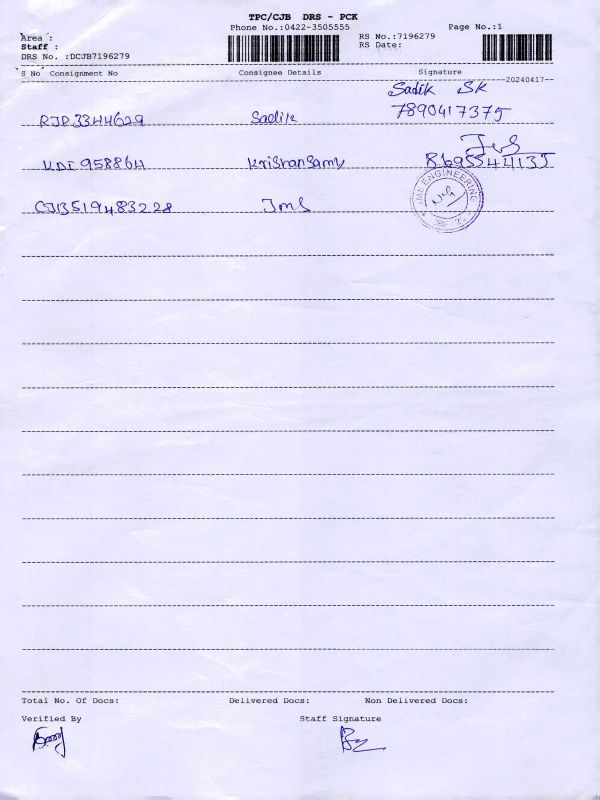 TPC/CJB DRS - PCK
Phone No.:0422-3505555
Page No.:1
Area :
RS No.:7196279
Staff :
RS Date:
DRS No. :DCJB7196279
S No Consignment No Consignee Details Signature
--20240417--
Sadik SK
RJP3344629 Sadik 7890417375
Jms
KDI958864 Krishansamy 8695541135
CJB519483228 Jms
JMS ENGINEERING
Total No. Of Docs: Delivered Docs: Non Delivered Docs:
Verified By Staff Signature